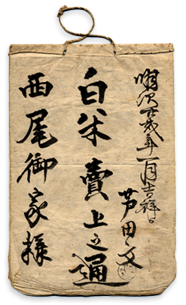 明治廿弐年一月吉祥日
芦田久
白米賣上之通
西尾御家様